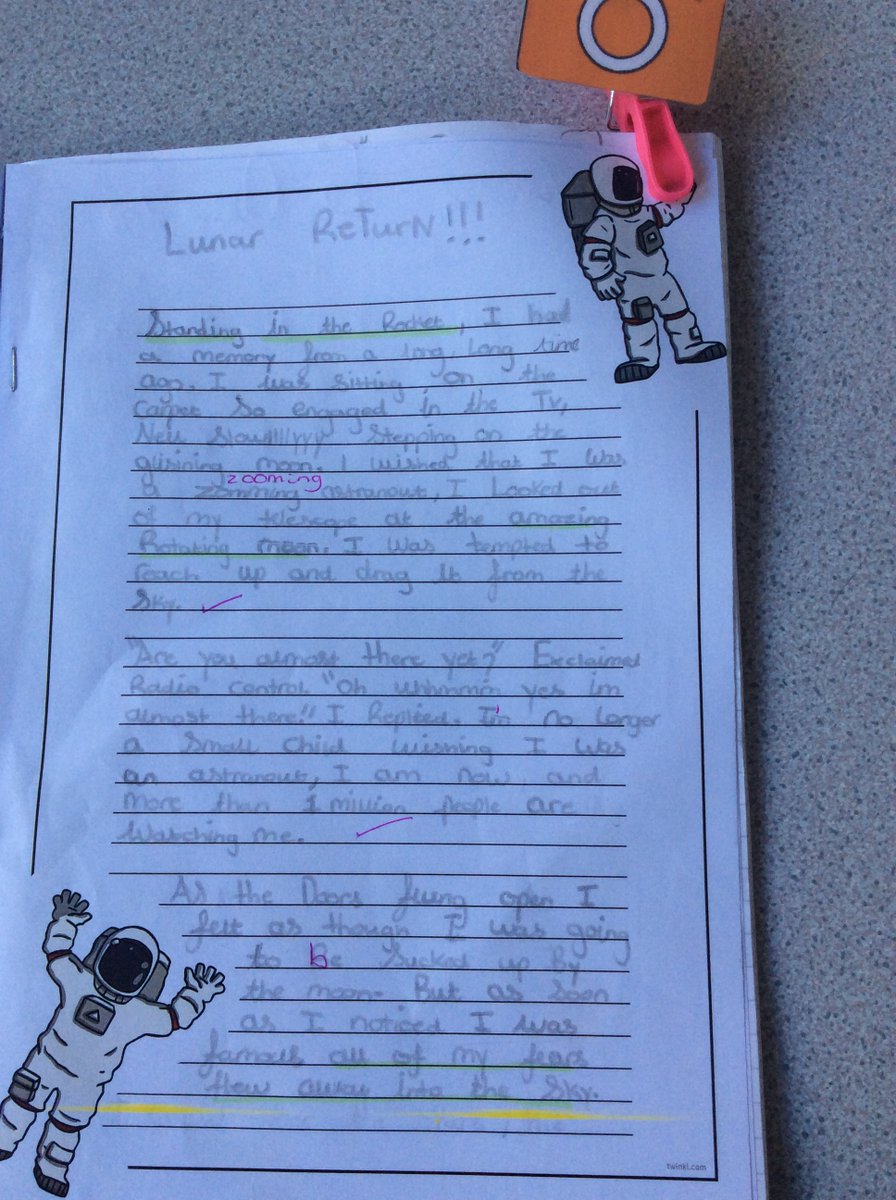 Lunar ReTurN!!!
Standing in the Rocket, I had
a memory from a long, long time
ago. I was sitting on the
carpet so engaged in the TV,
Neil Slowlllllyyy Stepping on the
glisining moon. I wished that I was
zooming
a zomming astranout, I Looked out
of my telescope at the amazing
Rotating moon. I was tempted to
reach up and drag it from the
Sky.
"Are you almost there yet?" Exclaimed
Radio control. "Oh uhhmmm yes im
almost there." I Replied. I'm no longer
a small child wishing I was
an astranout, I am now and
more than 1 million people are
Watching me.
As the Doors flung open I
felt as though I was going
to be Sucked up By
the moon. But as soon
as I noticed I was
famous all of my fears
flew away into the Sky.
twinkl.com